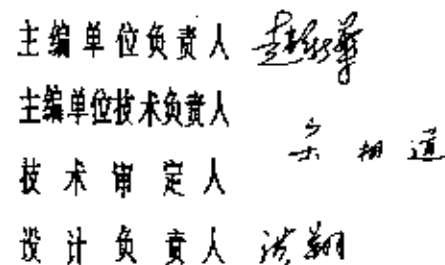 主编单位负责人
主编单位技术负责人
技术审定人
设计负责人